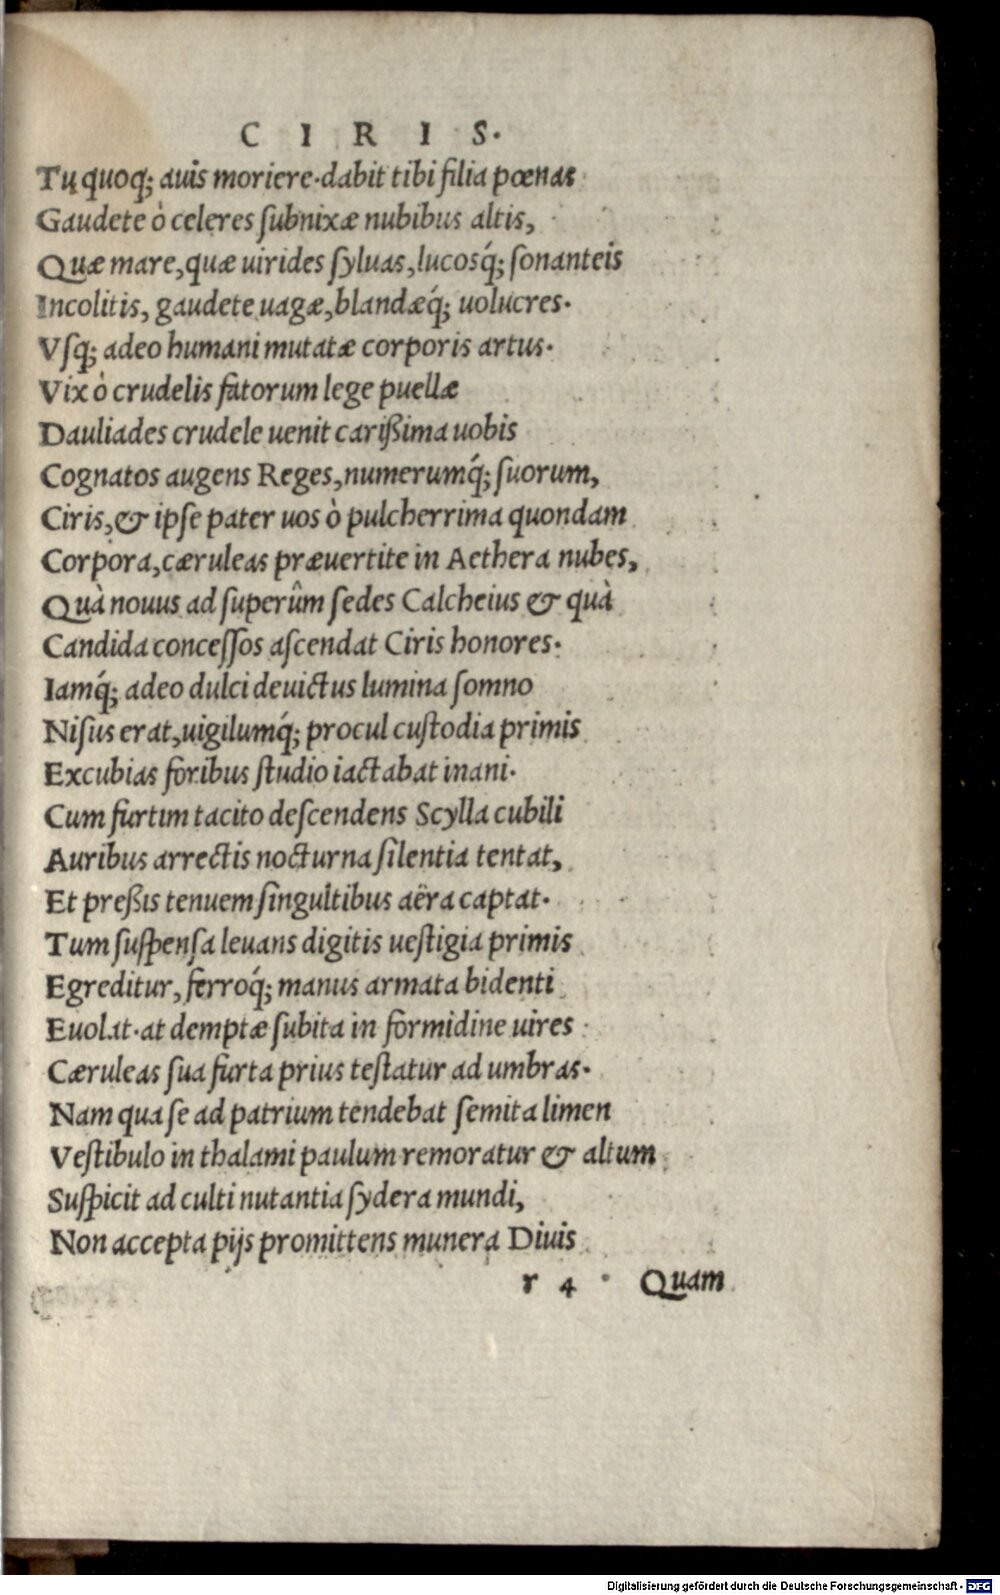 C I R I S.
Tu quoq; auis moriere. dabit tibi filia pœnas
Gaudete ò celeres ſubnixæ nubibus altis,
Quæ mare, quæ uirides ſyluas, lucosq́; ſonanteis
Incolitis, gaudete uagæ, blandæq́; uolucres.
Vſq; adeo humani mutatæ corporis artus.
Vix ò crudelis fatorum lege puellæ
Dauliades crudele uenit carißima uobis
Cognatos augens Reges, numerumq́; ſuorum,
Ciris, & ipſe pater uos ò pulcherrima quondam
Corpora, cæruleas præuertite in Aethera nubes,
Quà nouus ad superûm ſedes Calcheius & quà
Candida conceſſos aſcendat Ciris honores.
Iamq́; adeo dulci deuictus lumina ſomno
Niſus erat, uigilumq́; procul cuſtodia primis
Excubias foribus ſtudio iactabat inani.
Cum furtim tacito deſcendens Scylla cubili
Auribus arrectis nocturna ſilentia tentat,
Et preßis tenuem ſingultibus aëra captat.
Tum ſuſpenſa leuans digitis ueſtigia primis
Egreditur, ferroq́; manus armata bidenti
Euolat. at demptæ ſubita in formidine uires
Cæruleas ſua furta prius teſtatur ad umbras.
Nam qua ſe ad patrium tendebat ſemita limen
Veſtibulo in thalami paulum remoratur & altum
Suſpicit ad culti nutantia ſydera mundi,
Non accepta pijs promittens munera Diuis
r 4 Quam
Digitalisierung gefördert durch die Deutsche Forschungsgemeinschaft - DFG